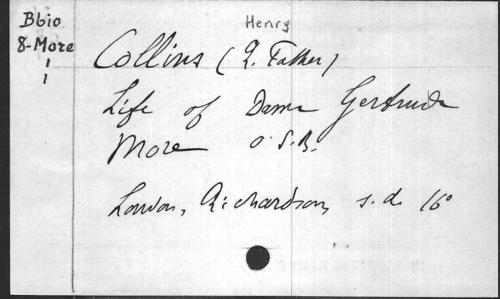 Bbio
8-More
Henry
Collins ( Q. Father )
Life of Dame Gertrude
More O.S.B.
London, Richardson, s.d. 16°